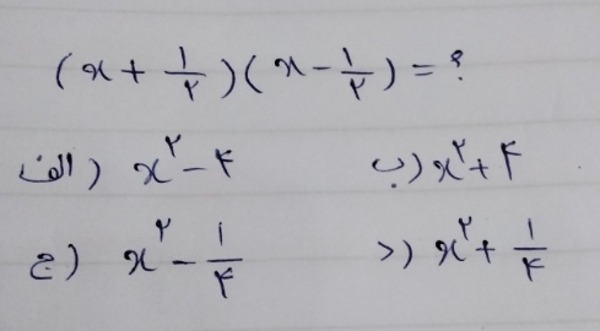 (x + ۱/۲)(x - ۱/۲) = ?
الف) x^۲ - ۴ ب) x^۲ + ۴
ج) x^۲ - ۱/۴ د) x^۲ + ۱/۴